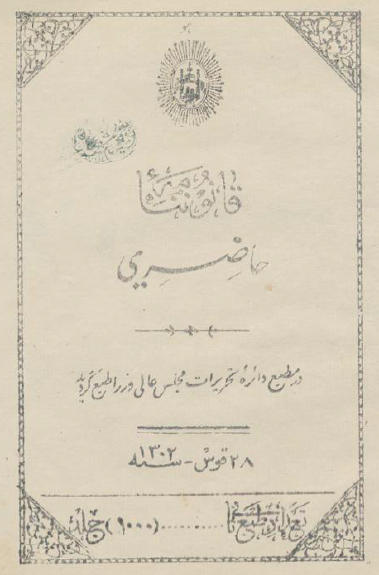 هو
قانوننامهٔ
حاضری
در مطبع دائرهٔ تحریرات مجلس عالی وزرا طبع گردید
۲۸ قوس - سنه ۱۳۰۲
تعداد طبع ........ (۱۰۰۰) جلد